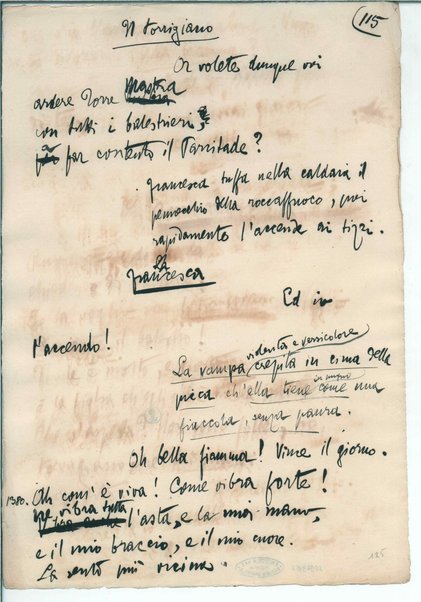 115
Il Torrigiano
Or volete dunque voi
ardere Torre Mastra
con tutti i balestrieri,
per far contento il Parcitade?
Francesca tuffa nella caldaia il
pennecchio della roccaffuoco, poi
rapidamente l'accende ai tizzi.
La
Francesca
Ed io
l'accendo!
violenta e versicolore
La vampa crepita in cima della
in pugno
picca ch'ella tiene come una
fiaccola, senza paura.
Oh bella fiamma! Vince il giorno.
1380. Oh com'è viva! Come vibra forte!
ne vibra tutta
l'asta, e la mia mano,
e il mio braccio, e il mio cuore.
La sento più vicina
125